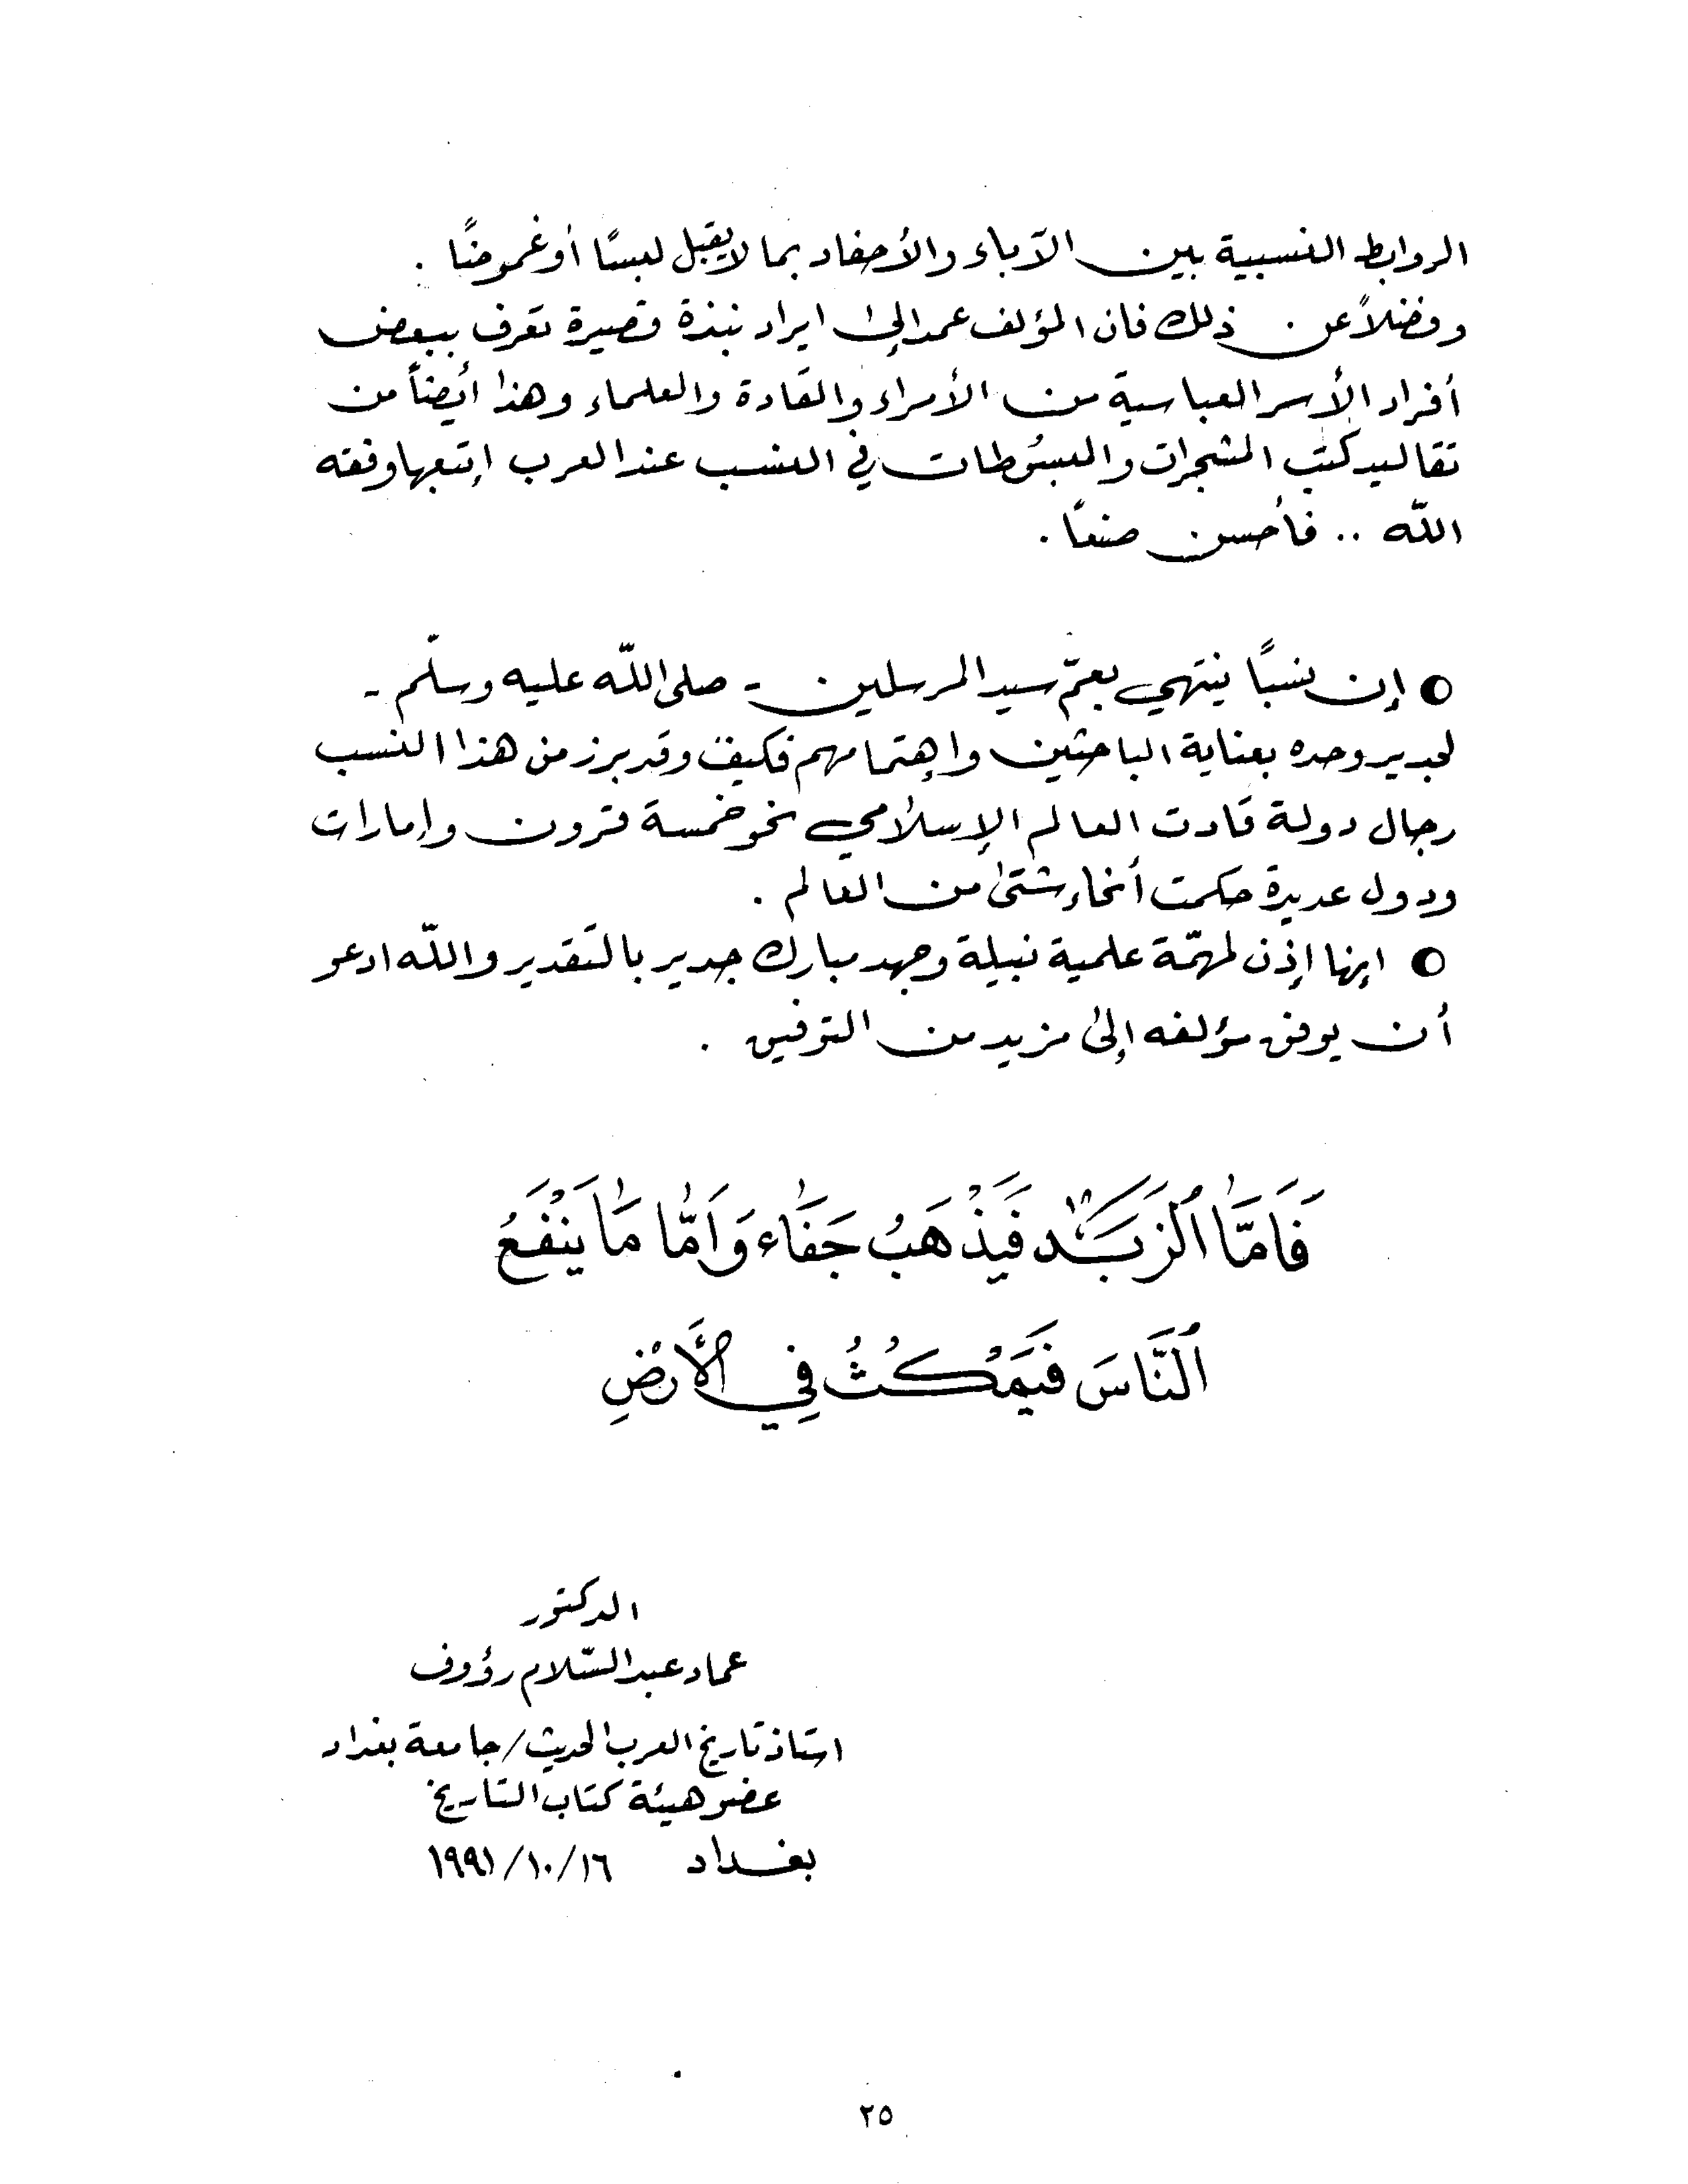 الروابط النسبية بين الآباء والأحفاد بما لا يقبل لبسًا أو غموضًا .
وفضلاً عن ذلك فان المؤلف عمد إلى ايراد نبذة قصيرة تعرف ببعض
أفراد الأسر العباسية من الأمراء والقادة والعلماء وهذا أيضاً من
تقاليد كتب المشجرات والمبسوطات في النسب عند العرب إتبعها وفقه
اللّه .. فأحسن صنعًا .
● إن نسبًا ينتهي بعمّ سيد المرسلين - صلى اللّه عليه وسلّم -
لجدير وحده بعناية الباحثين واهتمامهم فكيف وقد برز من هذا النسب
رجال دولة قادت العالم الإسلامي نحو خمسة قرون وإمارات
ودول عديدة حكمت أنحاء شتى من العالم .
● إنها إذن لمهمّة علمية نبيلة وجهد مبارك جدير بالتقدير واللّه ادعو
أن يوفق مؤلفه إلى مزيد من التوفيق .
فَامَّا ٱلزَبَدُ فَيَذْهَبُ جَفَاء وَاَمَّا مَا يَنْفَعُ
ٱلنَّاسَ فَيَمْكُثُ فِي الأَرْضِ
الدكتور
عماد عبد السّلام رؤوف
استاذ تاريخ العرب الحديث / جامعة بغداد
عضو هيئة كتاب التاريخ
بغداد ١٩٩١/١٠/١٦
٢٥